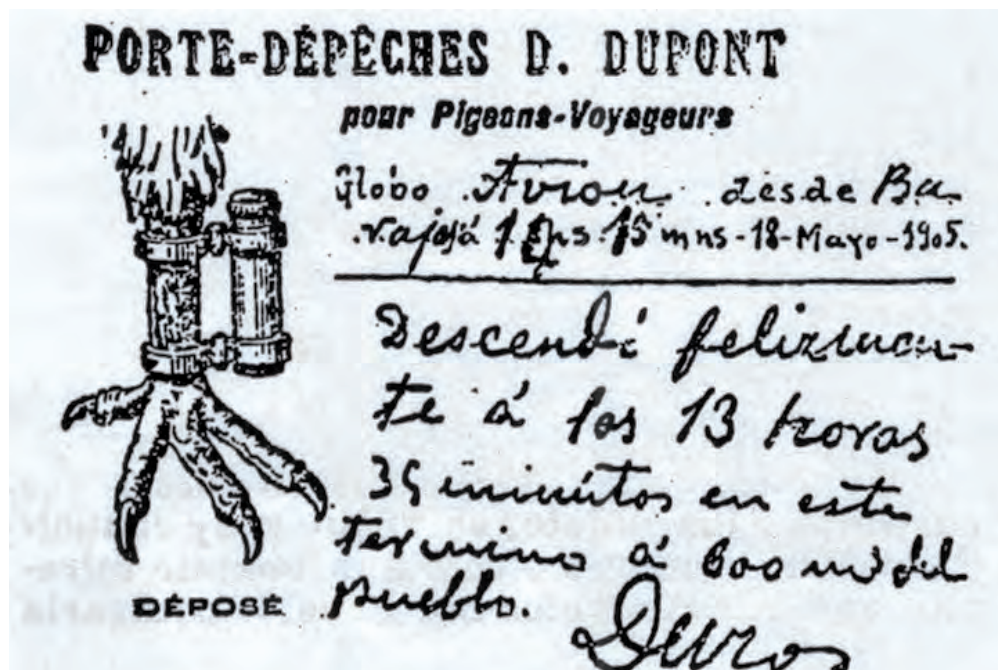 PORTE-DÉPÊCHES D. DUPONT
pour Pigeons-Voyageurs
Globo Avion desde Ba
rajas á 15 mns-18-Mayo-1905.
Descendí felizmen-
te á las 13 horas
35 minutos en este
termino á 600 m del
pueblo.
Duro
DÉPOSÉ